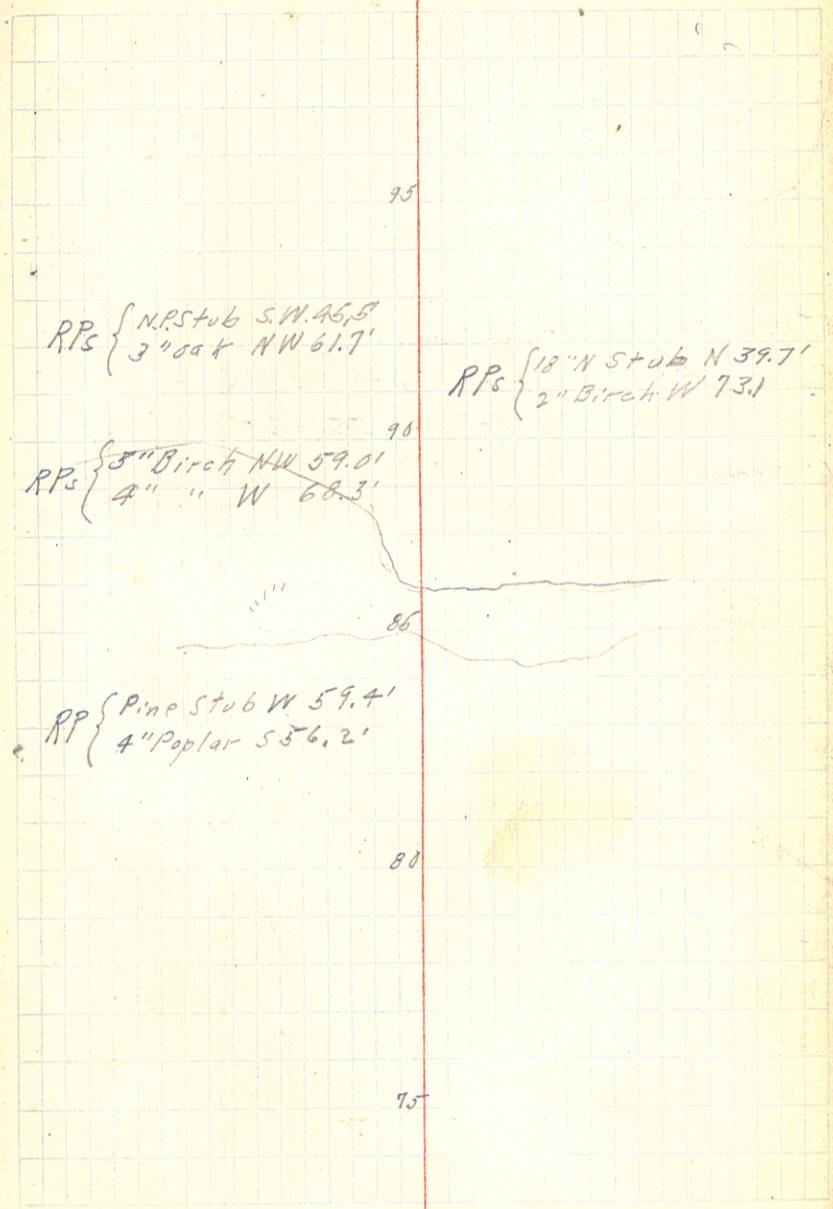 95
RPs { N.P. Stub S.W. 45,5'
3" oak NW 61.7'
RPs { 18" N Stub N 39.7'
2" Birch W 73.1
90
RPs { 3" Birch NW 59.0'
4" " W 68.3'
86
RP { Pine Stub W 59.4'
4" Poplar S 56.2'
80
75